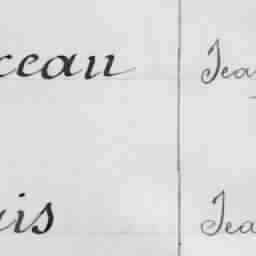 ceau Jea
is Jea